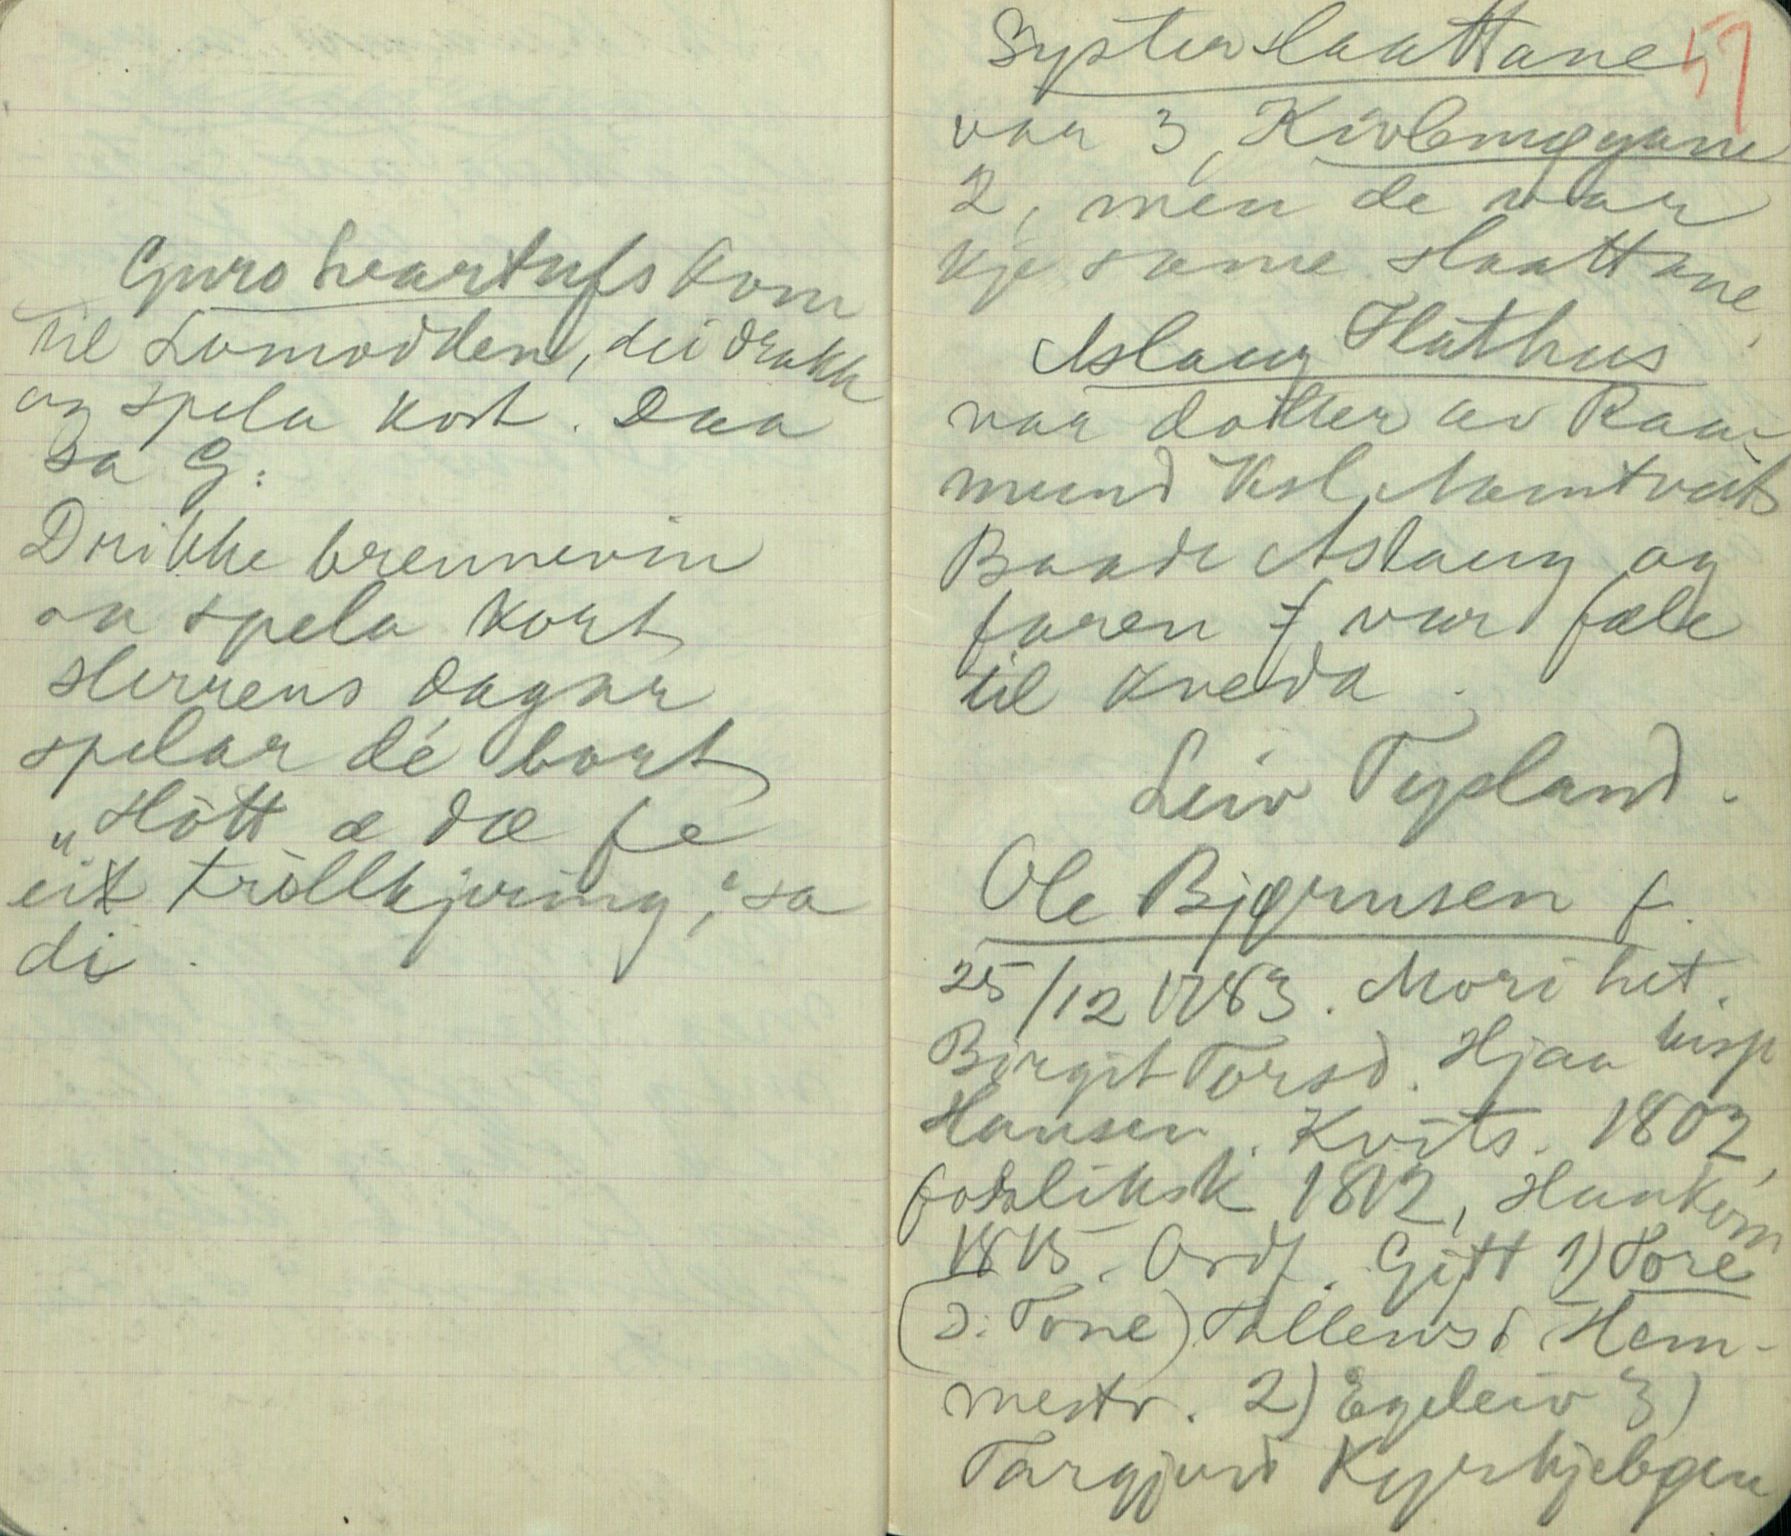 Guro heartufs kom
til Lomodden, dei drakk
og spela kort. Daa
sa G:
Drikke brennevin
aa spela kort
Herrens dagar
spelar dé bort
„Hött æ dæ fe
eit tröllkjering," sa
di.
Systerslaattane 57
var 3, Kivlemøyane
2, men de var
kje same slaattane.
Aslaug Flathus
var dotter av Raa-
mund Vesl. Mæmtveit
Baade Aslaug og
faren f var fæle
til kveda.
Leiv Tysland.
Ole Bjørnsen f.
25/12 1783. Mori het.
Birgit Torsd. Hjaa bisp
Hansen. Kvits. 1802,
1812, Haukom
1815. Ordf. Gift 1) Tore
(ɔ: Tone) Tallevsd Hem-
mestv. 2) Egeleiv 3)
Targjerd Kyrkjebøen